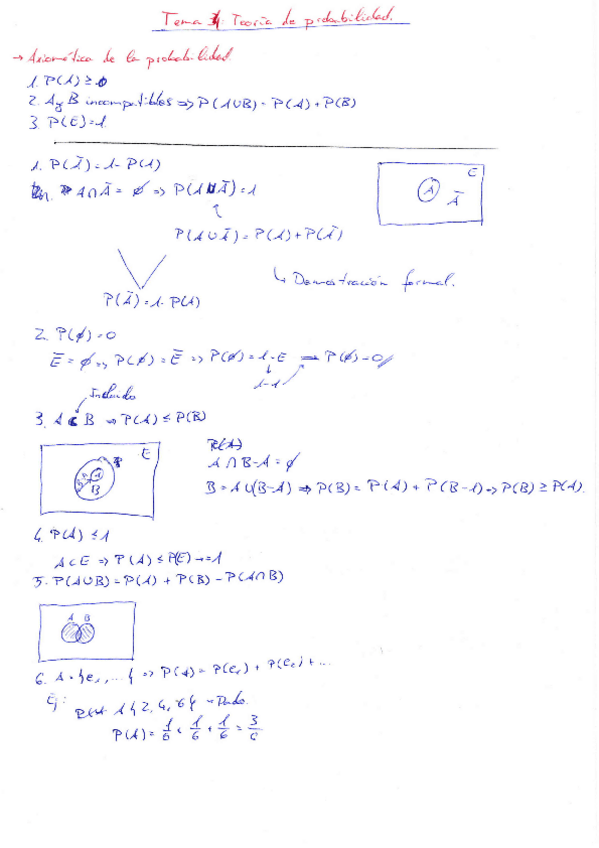 Tema 4 Teoría de probabilidad.
→ Axiomática de la probabilidad.
1. P(A) ≥ 0
2. A y B incompatibles ⇒ P(A∪B) = P(A) + P(B)
3. P(E) = 1.
1. P(Ā) = 1 - P(A)
E
A
Ā
A∩Ā = ∅ ⇒ P(A∪Ā) = 1
P(A∪Ā) = P(A) + P(Ā)
↳ Demostración formal.
P(Ā) = 1 - P(A)
2. P(∅) = 0
Ē = ∅ ⇒ P(∅) = Ē ⇒ P(∅) = 1 - E ⇒ P(∅) = 0
1-1
Incluido
3. A ⊂ B ⇒ P(A) ≤ P(B)
E
A
B
A∩B-A = ∅
B = A∪(B-A) ⇒ P(B) = P(A) + P(B-A) ⇒ P(B) ≥ P(A).
4. P(A) ≤ 1
A⊂E ⇒ P(A) ≤ P(E) → = 1
5. P(A∪B) = P(A) + P(B) - P(A∩B)
A B
6. A = {e₁, ...} ⇒ P(A) = P(e₁) + P(e₂) + ...
Ej:
A {2, 4, 6} → Dado.
P(A) = 1/6 + 1/6 + 1/6 = 3/6